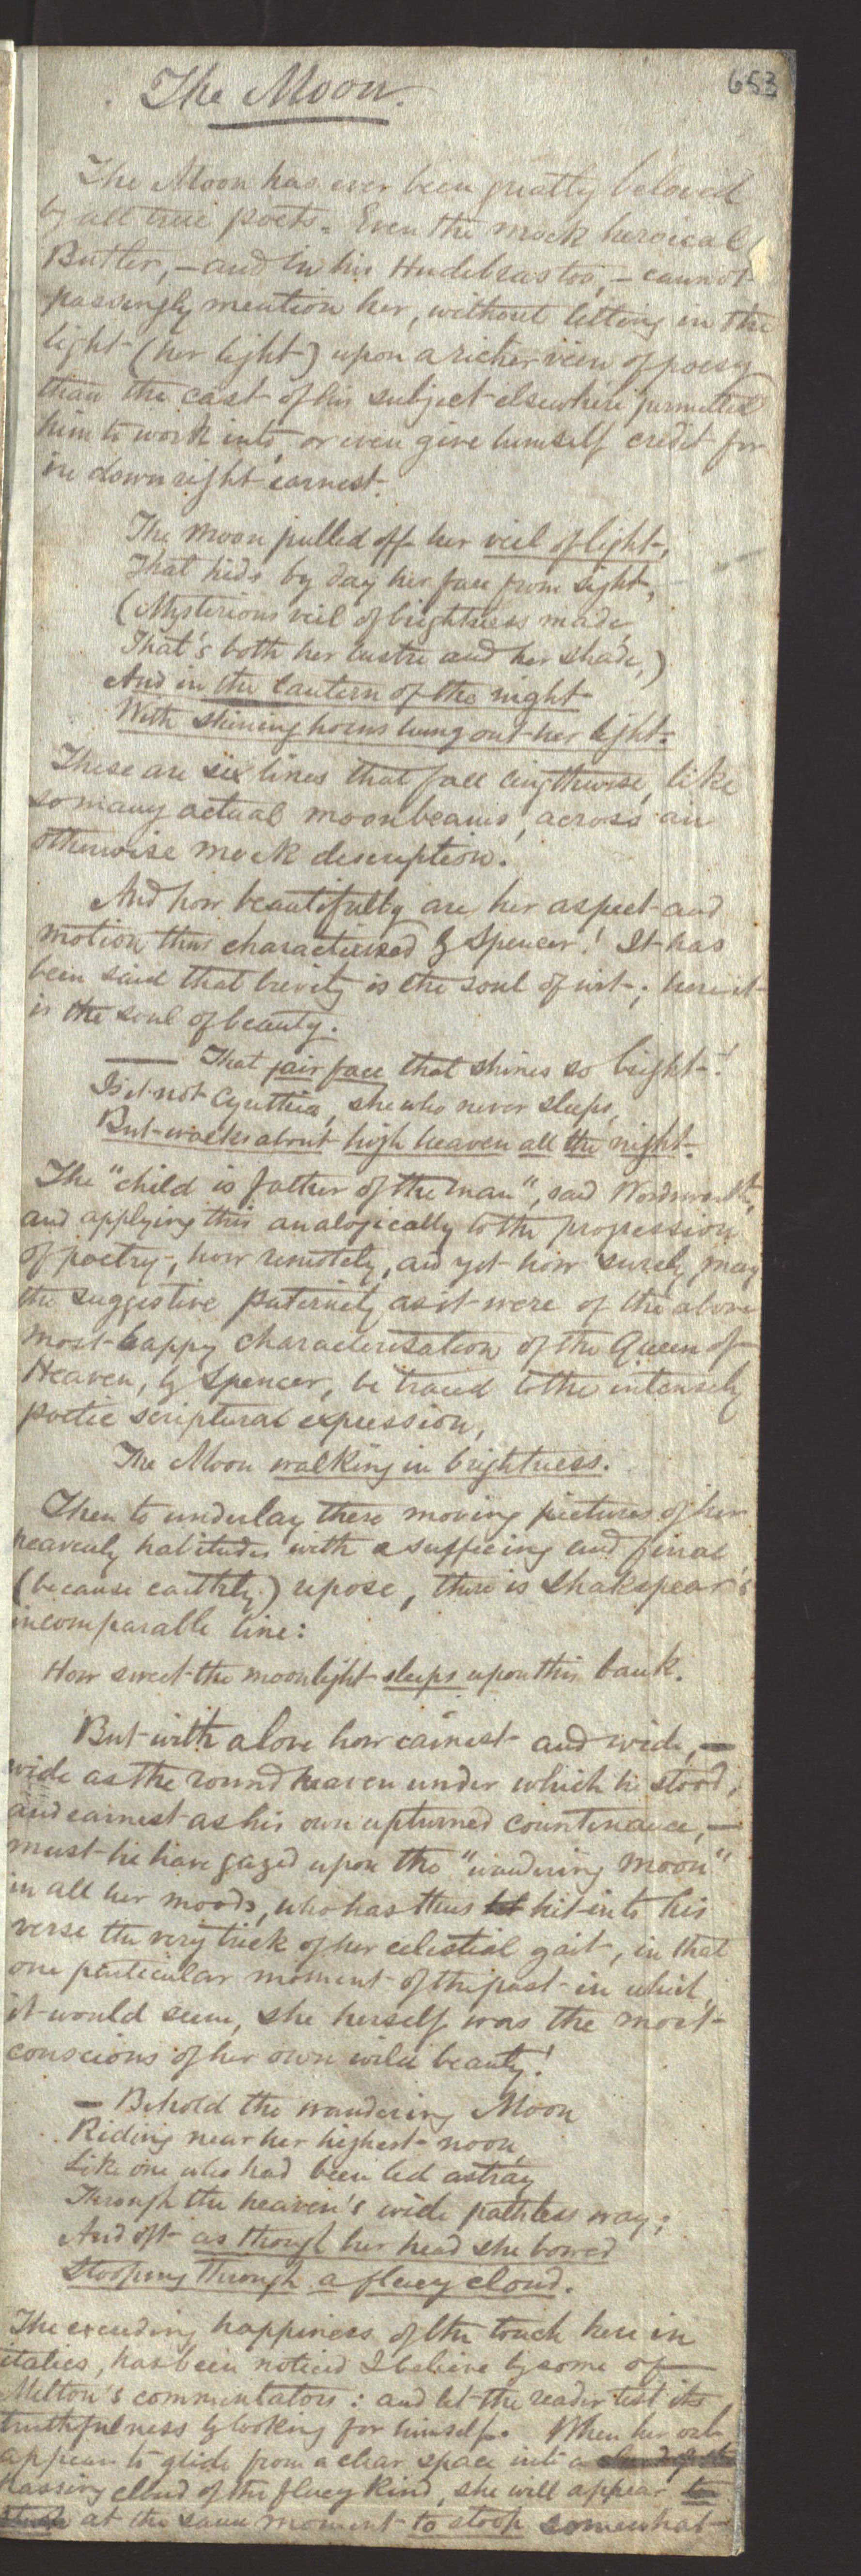 653
The Moon.
The Moon has ever been greatly beloved
by all true poets. Even the mock heroical
Butler, – and in his Hudibras too, – cannot
passingly mention her, without letting in the
light (her light) upon a richer vein of poesy
than the cast of his subject elsewhere permitted
him to work into, or even give himself credit for
in downright earnest.
The moon pulled off her veil of light,
That hides by day her face from sight,
(Mysterious veil of brightness made,
That's both her lustre and her shade,)
And in the lantern of the night
With shining horns hung out her light.
These are six lines that fall lengthwise, like
so many actual moonbeams, across an
otherwise mock description.
And how beautifully are her aspect and
motion thus characterized by Spencer! It has
been said that brevity is the soul of wit; here it
is the soul of beauty.
— That fair face that shines so bright!
Is it not Cynthia, she who never sleeps,
But walks about high heaven all the night.
The "child is father of the man", said Wordsworth,
and applying this analogically to the progression
of poetry, how remotely, and yet how surely, may
the suggestive paternity as it were of the above
most happy characterisation of the Queen of
Heaven, by Spencer, be traced to the intensely
poetic scriptural expression,
The Moon walking in brightness.
Then to underlay these moving pictures of her
heavenly habitudes with a sufficing and final
(because earthly) repose, there is Shakspear's
incomparable line:
How sweet the moonlight sleeps upon this bank.
But with a love how earnest and wide, –
wide as the round heaven under which he stood,
and earnest as his own upturned countenance, –
must he have gazed upon the "wandering moon"
in all her moods, who has thus hit into his
verse the very trick of her celestial gait, in that
one particular moment of the past in which,
it would seem, she herself was the most
conscious of her own wild beauty!
– Behold the wandering Moon
Riding near her highest noon,
Like one who had been led astray
Through the heaven's wide pathless way;
And oft as though her head she bowed
Stooping through a fleecy cloud.
The exceeding happiness of the touch here in
italics, has been noticed I believe by some of
Milton's commentators: and let the reader test its
truthfulness by looking for himself. When her orb
appears to glide from a clear space into a
passing cloud of the fleecy kind, she will appear
at the same moment to stoop somewhat